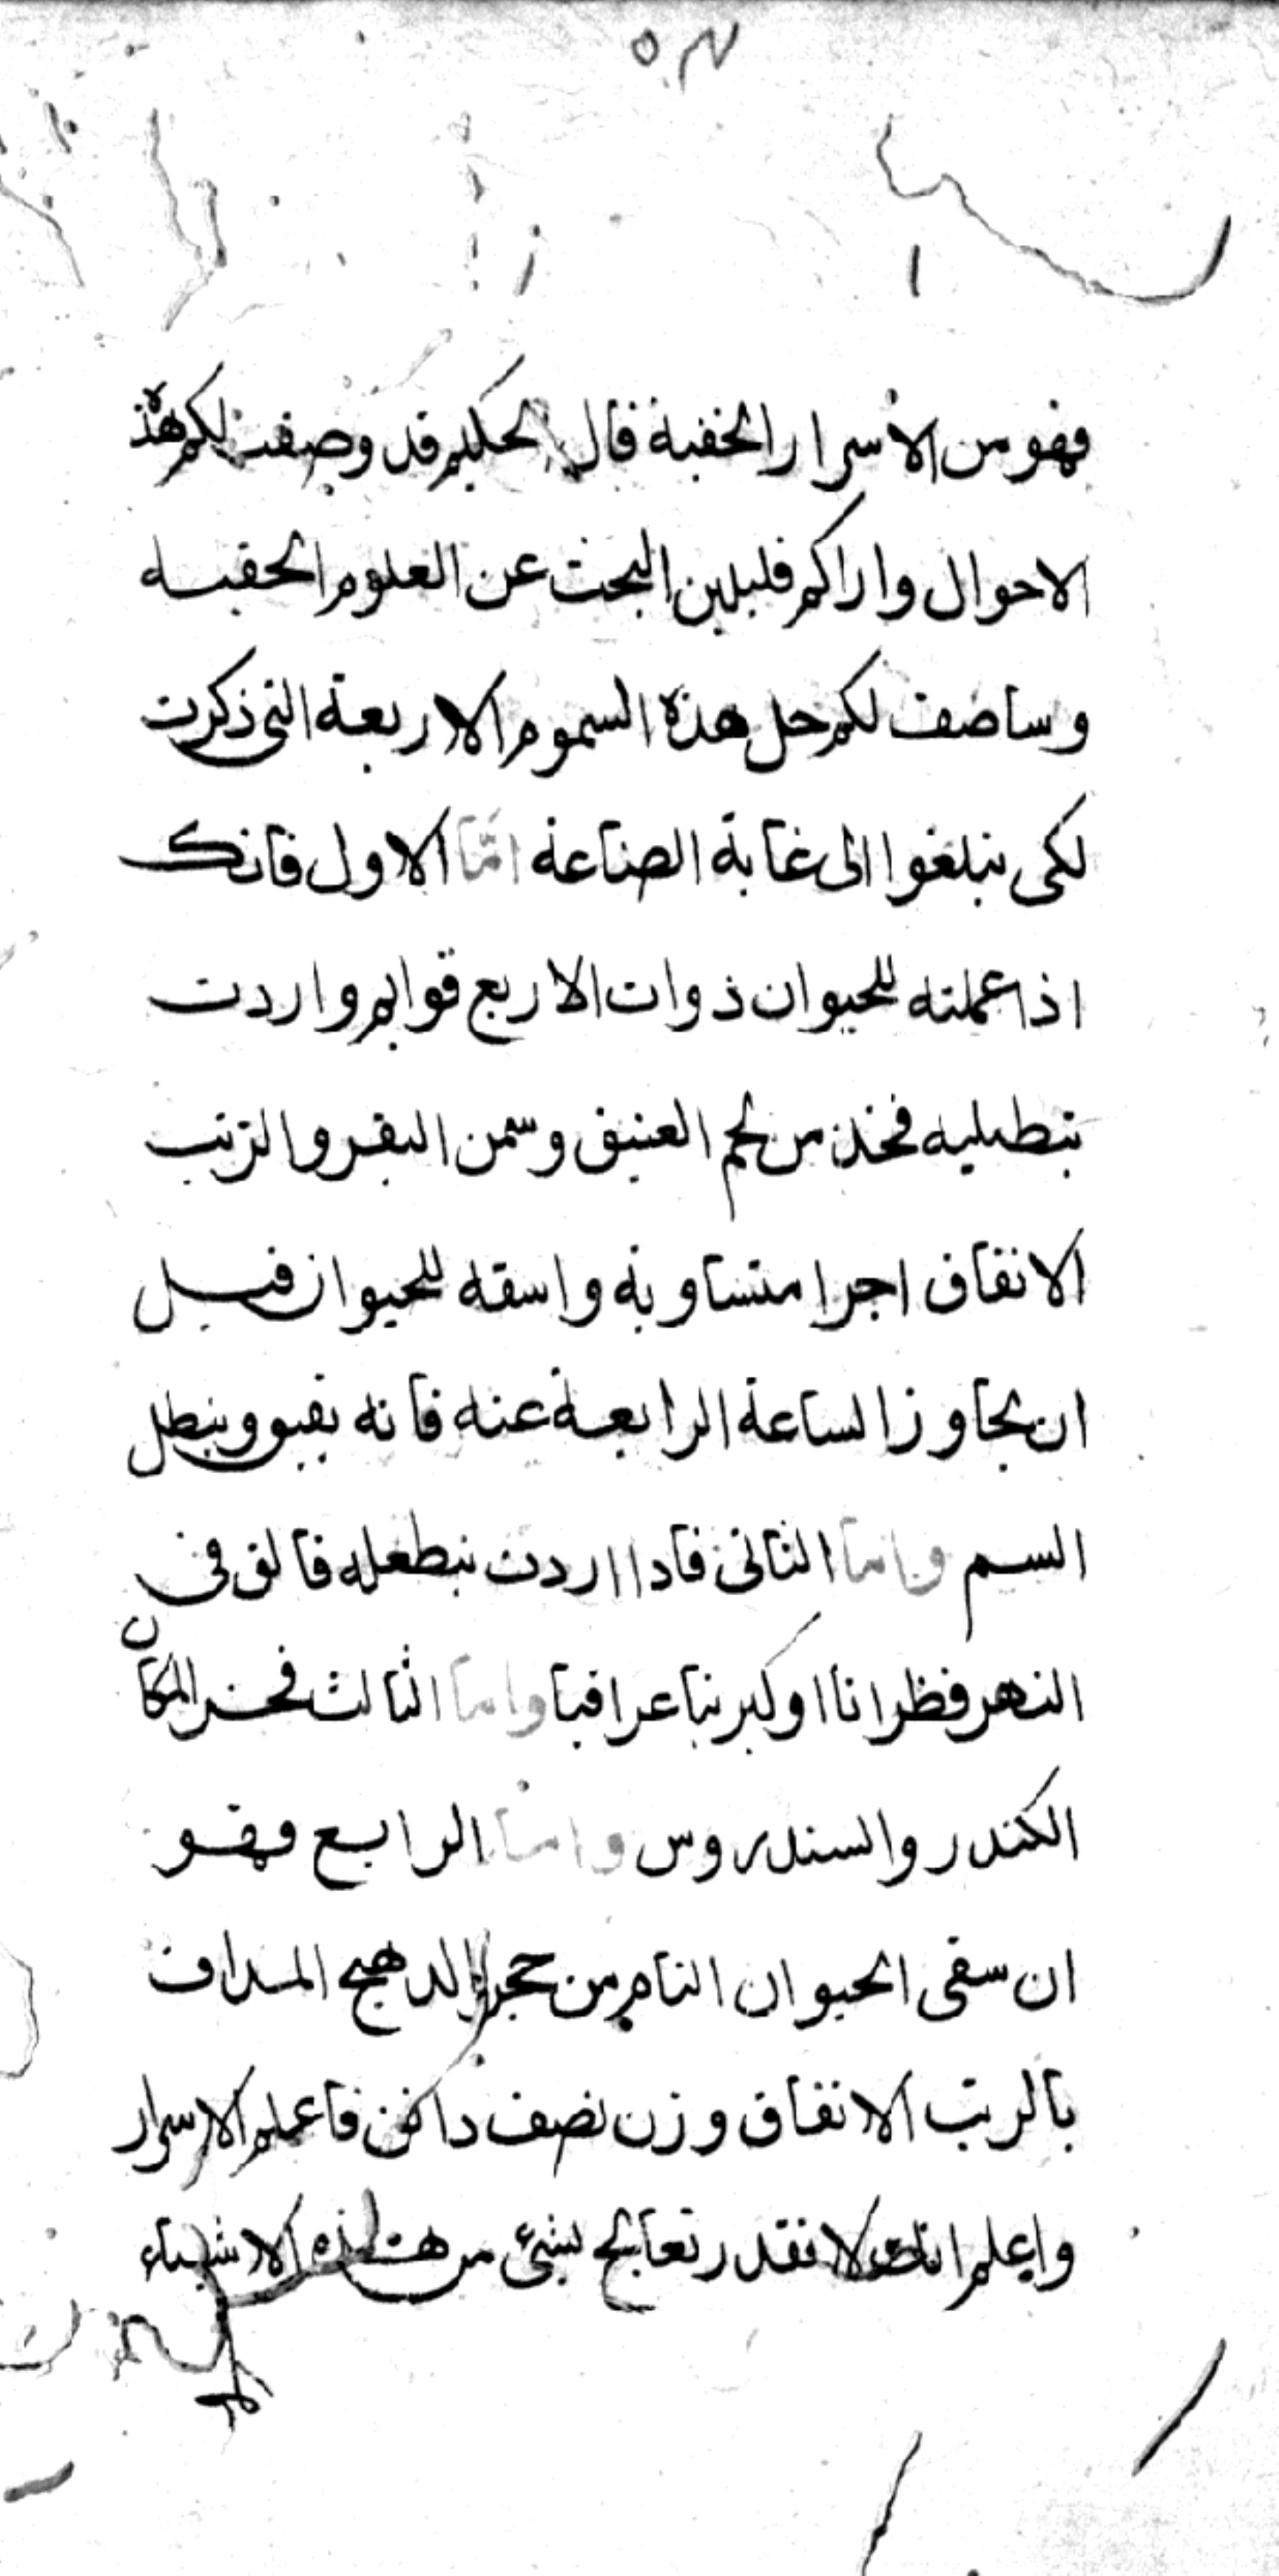 فهو من الاسرار الخفية قال الحكيم قد وصفت لكم هذه
الاحوال واراكم قليلين البحث عن العلوم الحقيه
وساصف لكم حل هذه السموم الاربعة التي ذكرت
لكي تبلغوا الى غاية الصناعة امّا الاول فانك
اذا عملته للحيوان ذوات الاربع قوايم واردت
تبطيله فخذ من لحم العتيق وسمن البقر والزيت
الانفاق اجرا متساوية واسقه للحيوان قبل
ان يجاوز الساعة الرابعة عنه فانه يقيو ويبطل
السم واما الثاني فادا اردت تبطله فالق في
النهر قطرانا او كبريتا عراقيا واما الثالث فخر المكان
الكندر والسندروس واما الرابع فهو
ان سقى الحيوان التام من حجر الدهنج المداف
بالزيت الانفاق وزن نصف دانق فاعلم الاسرار
وايعلم انك لا تقدر تعالج بشئ من هذه الاشياء